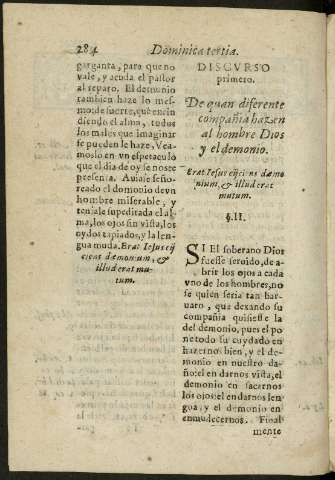 284 Dominica tertia.
garganta, para que no
vale, y acuda el pastor
al reparo. El demonio
tambien haze lo mes-
mo: de suerte, que encin
diendo el alma, todos
los males que imaginar
se pueden le haze, Vea-
moslo en vn espetaculo
que el dia de oy se nos re
presenta. Auiase señó-
reado el demonio de vn
hombre miserable, y
teniale supeditada el al-
ma, los ojos sin vista, los
oydos tapiados, y la len-
gua muda. Erat Iesus eij
ciens dæmonium, &
illud erat mu-
tum.
DISCVRSO
primero.
De quan diferente
compañia hazen
al hombre Dios
y el demonio.
Erat Iesus eijciens dæmo
nium, & illud erat
mutum.
§.II.
SI El soberano Dios
fuesse seruido, de a-
brir los ojos a cada
vno de los hombres, no
se quien seria tan bar-
uaro, que dexando su
compañia quisiesse la
del demonio, pues el po
ne todo su cuydado en
hazernos bien, y el de-
monio en nuestro da-
ño: el en darnos vista, el
demonio en sacarnos
los ojos: el en darnos len
gua, y el demonio en
enmudecernos. Final
mente